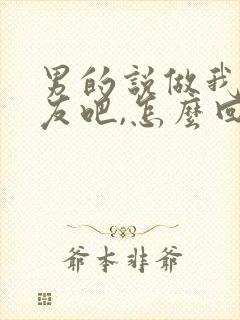 男的説做我
友吧,怎麼回
爺本非爺